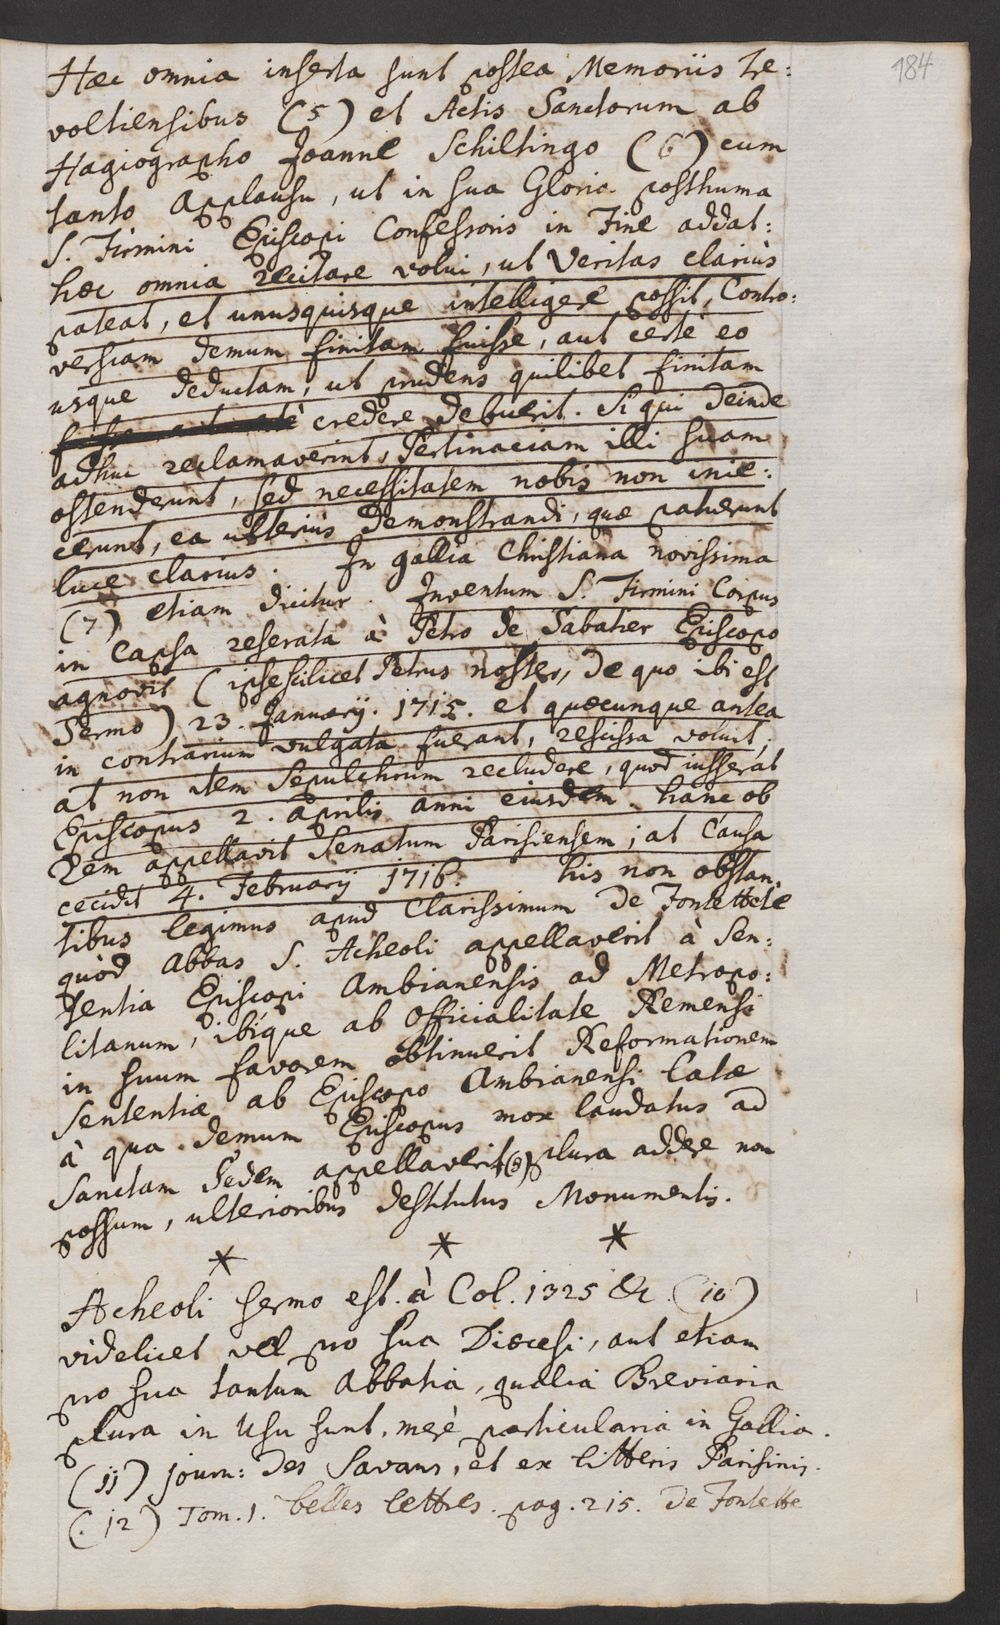 184
Hæc omnia inserta sunt postea Memoriis Tre:
voltiensibus (5) et Actis Sanctorum ab
Hagiographo Joanne Schiltingo (6) cum
tanto Applausu, ut in sua Gloria posthuma
S. Firmini Episcopi Confessoris in Fine addat:
hæc omnia recitare volui, ut Veritas clariùs
pateat, et unusquisque intelligere possit, Contro:
versiam demum finitam fuisse, aut certè eo
usque deductam, ut prudens quilibet finitam
credere debuerit. Si qui deinde
adhuc reclamaverint, Pertinaciam illi suam
ostenderunt, sed necessitatem nobis non inie:
cerunt, ea ulterius Demonstrandi, quæ patuerunt
luce clarius. In gallia Christiana novissima
(7) etiam dicitur. Inventum S. Firmini Corpus
in Capsa reserata à Petro de Sabatier Episcopo
agnovit (ipse scilicet Petrus noster, de quo ibi est
Sermo) 23. Januarij. 1715. et quæcunque antea
in contrarium vulgata fuerant, rescissa voluit,
at non item Sepulchrum recludere, quod iusserat
Episcopus 2. aprilis anni eiusdem. hanc ob
Rem appellavit Senatum Parisiensem; at Causa
cecidit 4. Februarij 1716. his non obstan
tibus legimus apud Clarissimum De Fontette
quòd Abbas S. Acheoli appellaverit à Sen:
tentia Episcopi Ambianensis ad Metropo:
litanum, ibique ab Officialitate Remensi
in suum favorem obtinuerit Reformationem
Sententiæ ab Episcopo Ambianensi latæ
à qua demum Episcopus mox laudatus ad
Sanctam Sedem appellaverit (8) plura addere non
possum, ulterioribus destitutus Monumentis.
* * *
Acheoli sermo est. à Col. 1325 &c. (10)
videlicet vel pro sua Diœcesi, aut etiam
pro sua tantum Abbatia, qualia Breviaria
plura in Usu sunt, merè particularia in Gallia.
(11) journ: des Savans, et ex litteris Parisinis.
(12) Tom. 1. belles lettres. pag. 215. De Fontette